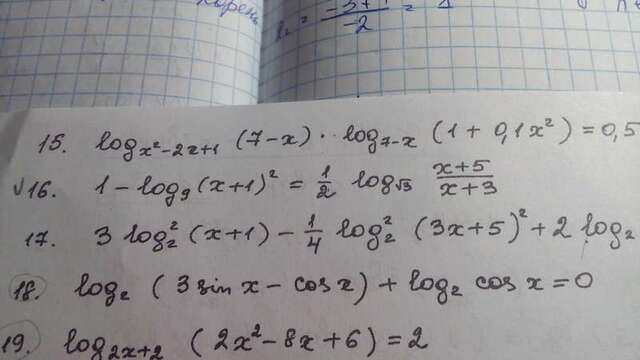 = \frac{-3+1}{-2} = 1
15. log_{x²-2x+1} (7-x) · log_{7-x} (1 + 0,1x²) = 0,5
√16. 1 - log₉ (x+1)² = \frac{1}{2} log_{√3} \frac{x+5}{x+3}
17. 3 log₂² (x+1) - \frac{1}{4} log₂² (3x+5)² + 2 log₂
18. log₂ (3 sin x - cos x) + log₂ cos x = 0
19. log_{2x+2} (2x² - 8x + 6) = 2